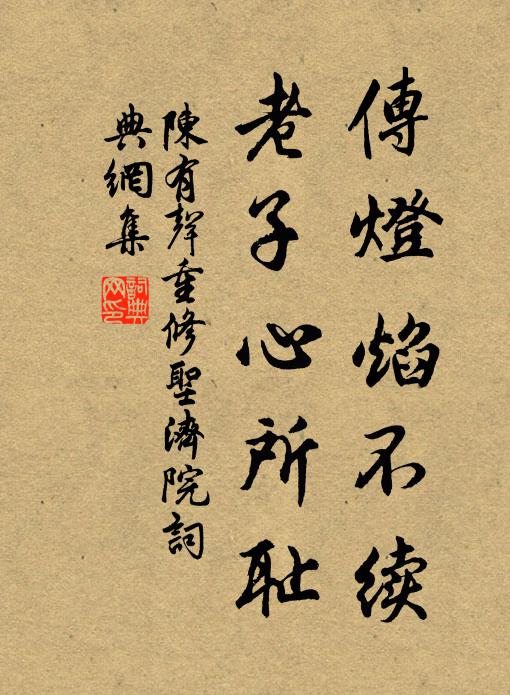 傳燈焰不续
老子心所耻
陳有聲重修聖濟院詞
典網集
詞典网印